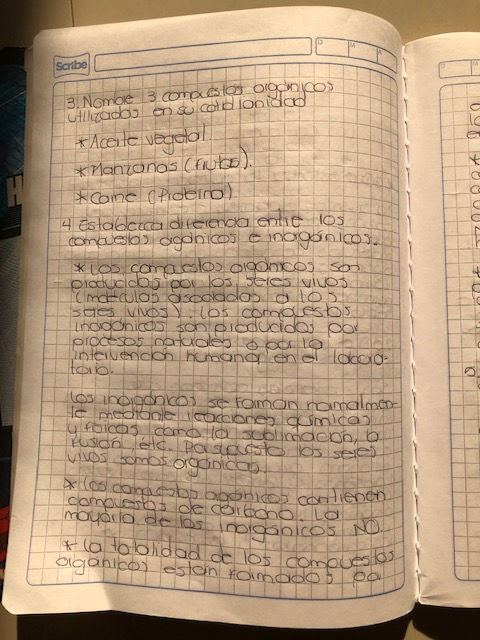 Scribe
D M A
3. Nombre 3 compuestos orgánicos
utilizados en su cotidianidad
* Aceite vegetal
* Manzanas (frutas).
* Carne (Proteina)
4. Establezca diferencia entre los
compuestos orgánicos e inorgánicos.
* Los compuestos orgánicos son
producidos por los seres vivos
(moléculas asociadas a los
seres vivos) los compuestos
inorgánicos son producidos por
procesos naturales o por la
intervención humana en el labora-
torio.
Los inorgánicos se forman normalmen-
te mediante reacciones químicas
y físicas, como la sublimación, la
fusión etc. Por supuesto los seres
vivos somos orgánicos.
* Los compuestos orgánicos contienen
compuestos de carbono. La
mayoría de los inorgánicos NO.
* La totalidad de los compuestos
orgánicos están formados por